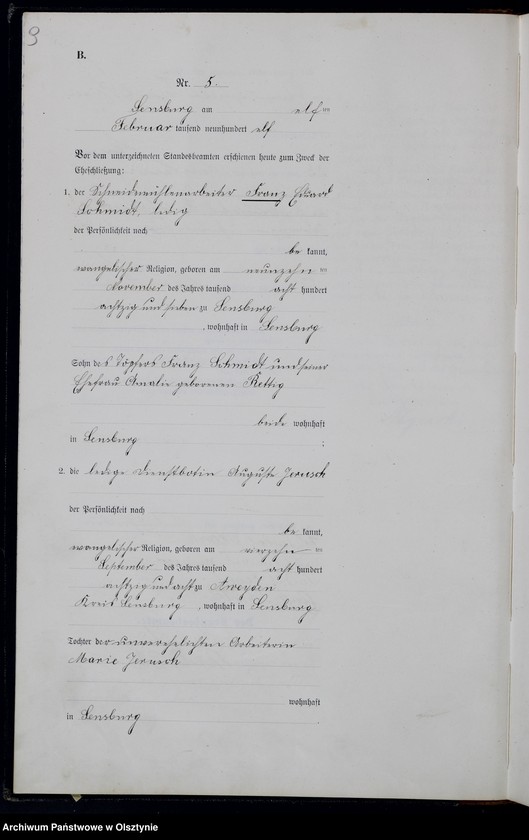 9
B.
Nr. 5.
Sensburg am elften
Februar tausend neunhundert elf
Vor dem unterzeichneten Standesbeamten erschienen heute zum Zweck der
Eheschließung:
1. der Schneidemühlenarbeiter Franz Eduard
Schmidt, ledig
der Persönlichkeit nach
be kannt,
evangelischer Religion, geboren am neunzehn ten
November des Jahres tausend acht hundert
achtzig und sieben zu Sensburg
, wohnhaft in Sensburg
Sohn des Töpfers Franz Schmidt und seiner
Ehefrau Amalie geborenen Rettig
beide wohnhaft
in Sensburg ;
2. die ledige Dienstbotin Auguste Jerusch
der Persönlichkeit nach
be kannt,
evangelischer Religion, geboren am vierzehn ten
September des Jahres tausend acht hundert
achtzig und acht zu Aweyden
Kreis Sensburg , wohnhaft in Sensburg
Tochter der unverehelichten Arbeiterin
Marie Jerusch
wohnhaft
in Sensburg
Archiwum Państwowe w Olsztynie